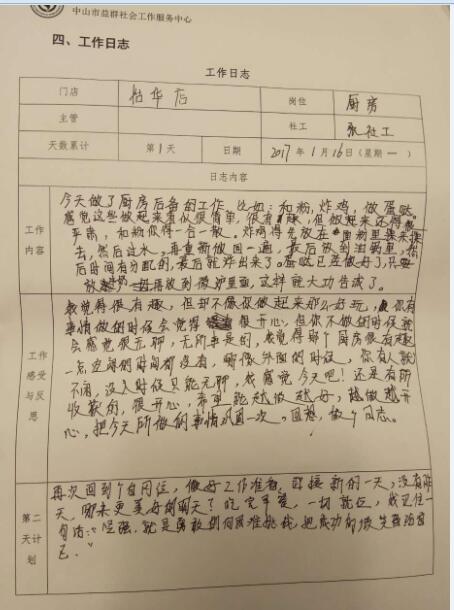 中山市益群社会工作服务中心
四、工作日志
工作日志
门店 怡华店 岗位 厨房
主管 社工 张社工
天数累计 第1天 日期 2017年1月16日(星期一)
日志内容
工作
内容
今天做了厨房后备的工作,比如:和粉,炸鸡,做蛋挞。
感觉这些做起来看似很简单,很有趣,但做起来还得
平肃,和粉似得一合一散。炸鸡得先放在面粉里
去,然后过水,再重新做回一遍,最后放到油锅里,
后时间有分配的,最后就炸出来了。蛋挞已差做好了,只要
放 再放到微炉里面,这样就大功告成了。
工作
感受
与反
思
我觉得很有趣,但却不像似做起来那么好玩,你有
事情做的时候会觉得很开心,但你不做的时候就
会感觉很无聊,无所事是的,我觉得那个厨房很有趣
一点空余的时间都没有,哪像外面的时候,你有人就
不闲,没人时候只能无聊,我感觉今天吧!还是有所
收获的,很开心,希望能越做越好,越做越开
心,把今天所做的事情巩固一次,回想,做个日志。
第二
天计
划
再次回到个自冈位,做好工作准备,迎接新的一天,没有昨
天,哪来更美好的明天?吃完早餐,一切就位,我记住一
句话:"坚强,就是勇敢
己."